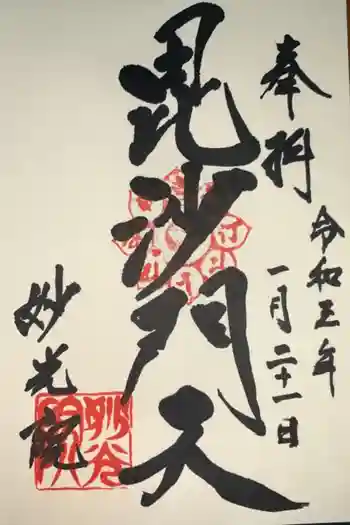 奉拝
令和三年
一月二十一日
毘沙門天
妙光院